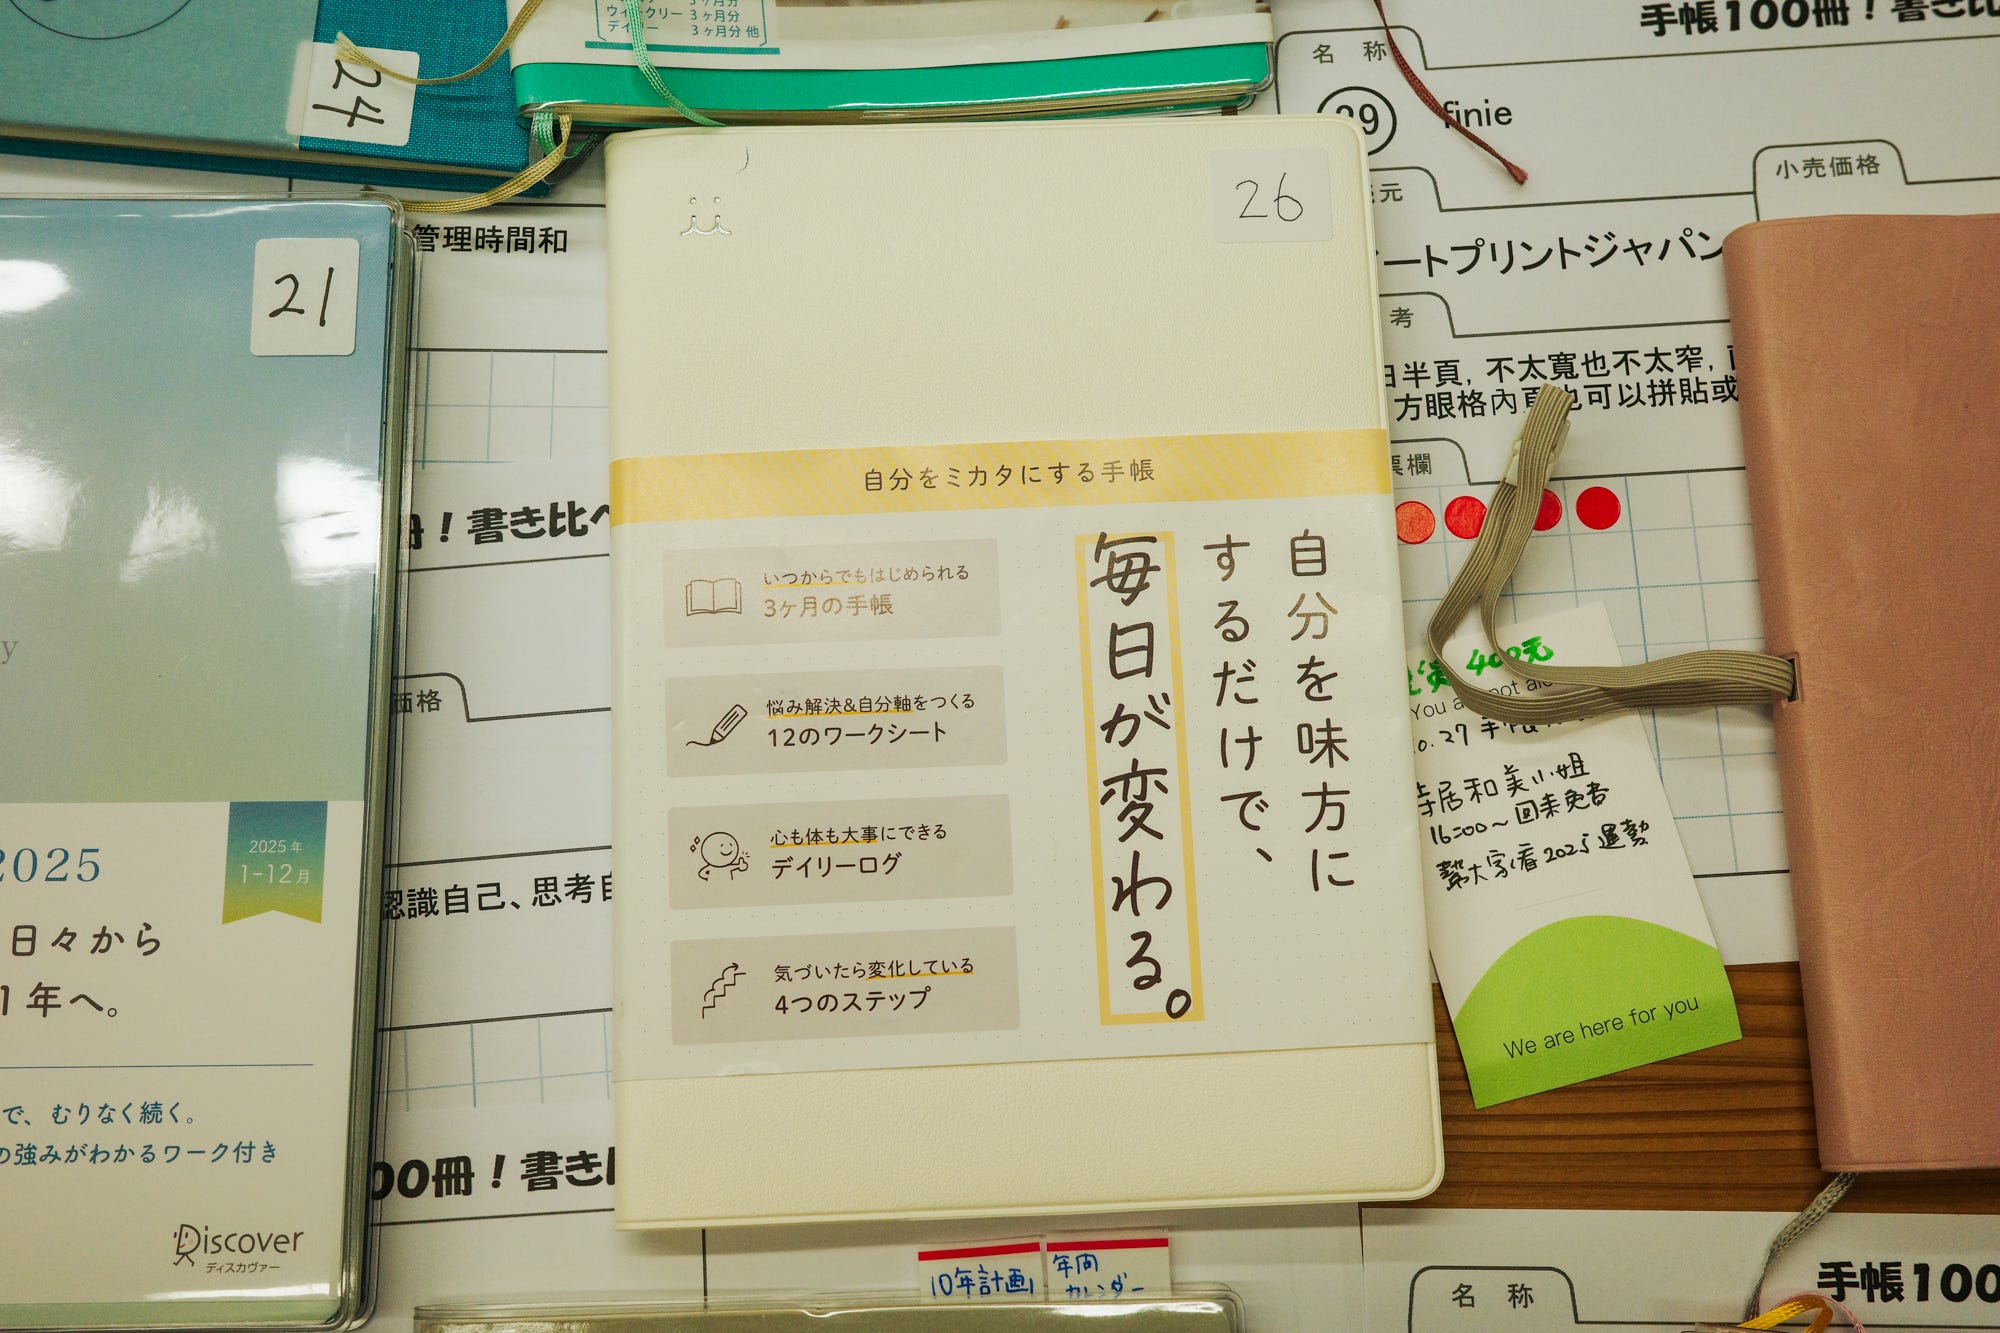 ウィークリー 3ヶ月分
3ヶ月分 他
24
手帳100冊！書き比
名 称
29
finie
小売価格
元
ートプリントジャパン
考
半頁, 不太寬也不太窄,
方眼格內頁也可以拼貼或
票欄
管理時間和
21
冊！書き比べ
価格
認識自己、思考自
00冊！書き
2025
2025年
1-12月
日々から
1年へ。
で、むりなく続く。
の強みがわかるワーク付き
Discover
ディスカヴァー
26
自分をミカタにする手帳
自分を味方に
するだけで、
毎日が変わる。
いつからでもはじめられる
3ヶ月の手帳
悩み解決&自分軸をつくる
12のワークシート
心も体も大事にできる
デイリーログ
気づいたら変化している
4つのステップ
400元
You a
not al
.27 手帳
居和美小姐
16:00~回来
幫大家看2025運勢
We are here for you
10年計画
年間
カレンダー
名 称
手帳100